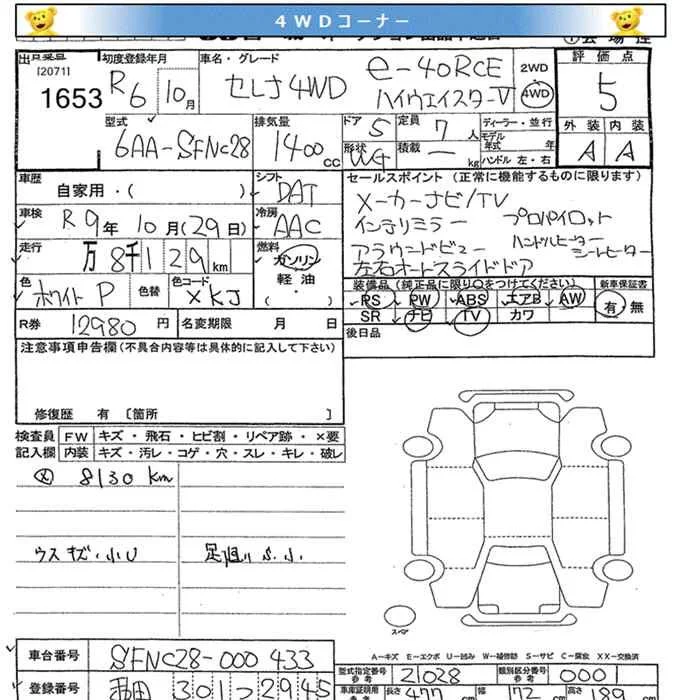 4WDコーナー
[2071]
1653
初度登録年月
R6 10月
車名・グレード
セレナ4WD
e-4ORCE
ハイウェイスターV
2WD
4WD
評価点
5
外装 内装
A A
型式
6AA-SFNC28
排気量
1400 cc
ドア 5
定員 7人
形状 WG
積載 — kg
ディーラー・並行
モデル年式 年
ハンドル 左・右
車歴
自家用・( )
シフト
DAT
車検
R9年10月(29日)
冷房
AAC
走行
万8千129km
燃料
ガソリン
軽油
・( )
色
ホワイトP
色替
色コード
XKJ
R券 12980円
名変期限 月 日
セールスポイント (正常に機能するものに限ります)
メーカーナビ/TV
インテリミラー プロパイロット
アラウンドビュー ハンドルヒーター シートヒーター
左右オートスライドドア
装備品(純正品に限り○をつけてください)
PS PW ABS エアB AW
SR ナビ TV カワ
新車保証書
有・無
後日品
注意事項申告欄(不具合内容等は具体的に記入して下さい)
修復歴 有 〔箇所 〕
検査員記入欄
FW キズ・飛石・ヒビ割・リペア跡・×要
内装 キズ・汚レ・コゲ・穴・スレ・キレ・破レ
8130 km
ウスキズ・小U
足廻りS.小
スペア
A−キズ E−エクボ U−凹み W−補修跡 S−サビ C−腐食 XX−交換済
車台番号 SFNC28-000433
登録番号 301 2945
型式指定番号 参考 21028
類別区分番号 参考 0001
車庫証明用 参考 長さ 477 cm 幅 172 cm 高さ 189 cm